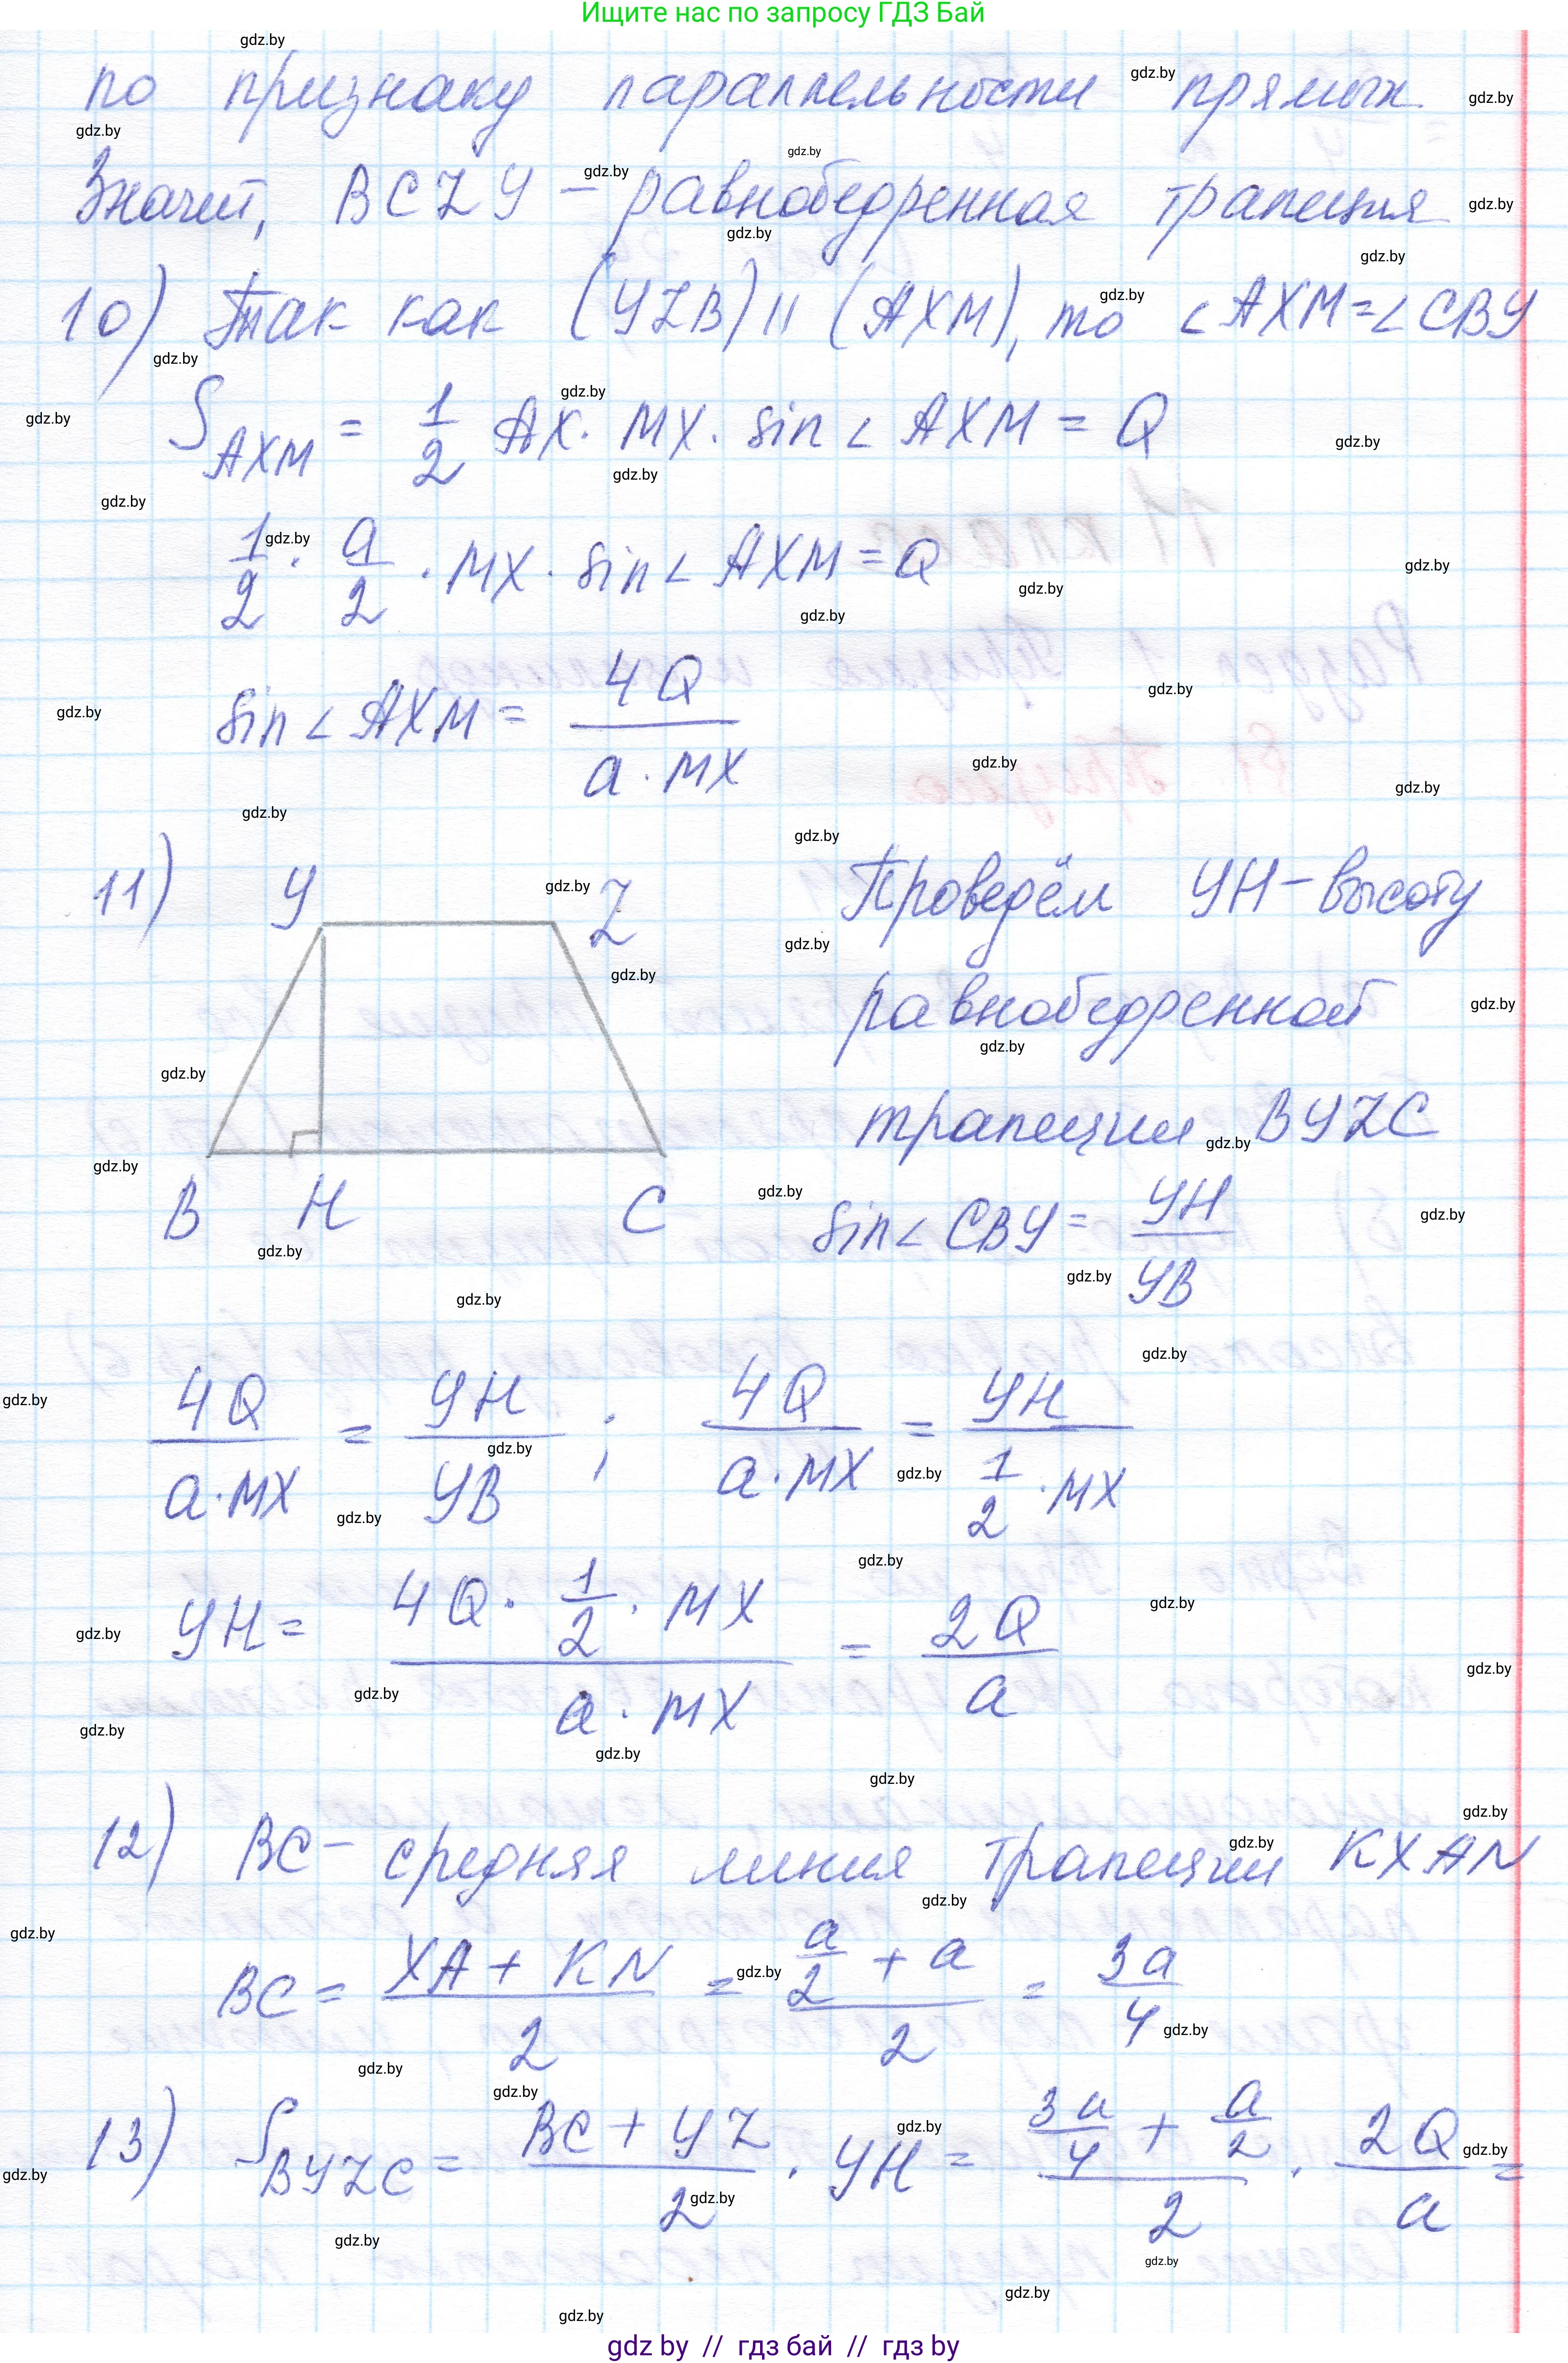 Ищите нас по запросу ГДЗ Бай
по признаку параллельности прямых.
Значит, BCZY – равнобедренная трапеция
10) Так как (YZB) || (AXM), то ∠AXM = ∠CBY
S_AXM = 1/2 AX · MX · sin∠AXM = Q
1/2 · a/2 · MX · sin∠AXM = Q
sin∠AXM = 4Q / (a · MX)
11) Y Z Проведём YH – высоту
равнобедренной
трапеции BYZC
B H C sin∠CBY = YH / YB
4Q / (a · MX) = YH / YB ; 4Q / (a · MX) = YH / (1/2 · MX)
YH = (4Q · 1/2 · MX) / (a · MX) = 2Q / a
12) BC – средняя линия трапеции KXAN
BC = (XA + KN) / 2 = (a/2 + a) / 2 = 3a / 4
13) S_BYZC = (BC + YZ) / 2 · YH = (3a/4 + a/2) / 2 · 2Q / a =
gdz by // гдз бай // гдз by